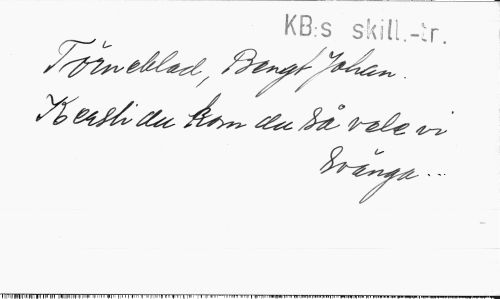 KB:s skill.-tr.
Törneblad, Bengt Johan.
Kersti du kom du så vele vi
svänga...